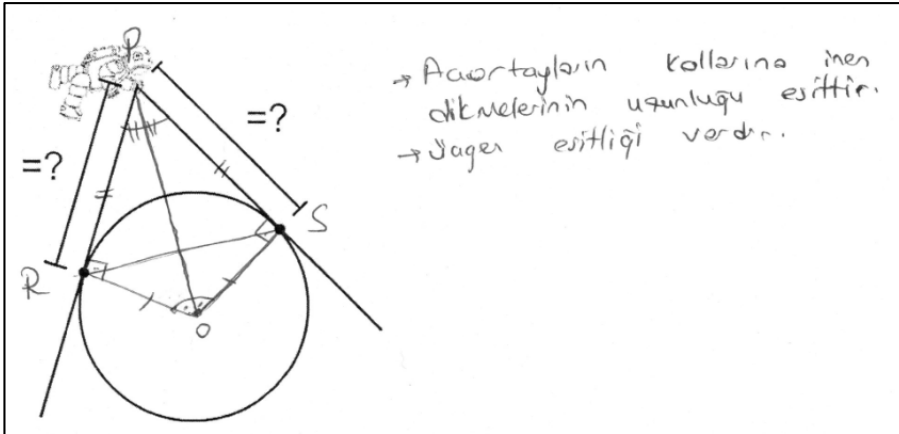 P
→ Açıortayların kollarına inen
dikmelerinin uzunluğu eşittir.
→ eşitliği vardır.
=?
=?
S
R
O